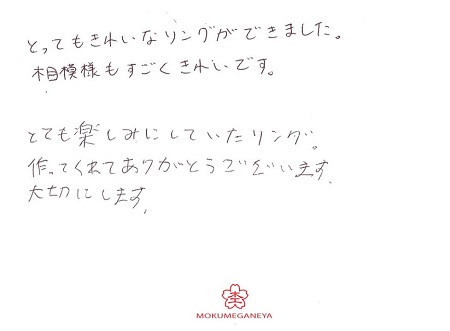 とってもきれいなリングができました。
相模様もすごくきれいです。
とても楽しみにしていたリング。
作ってくれてありがとうございます。
大切にします。
MOKUMEGANEYA